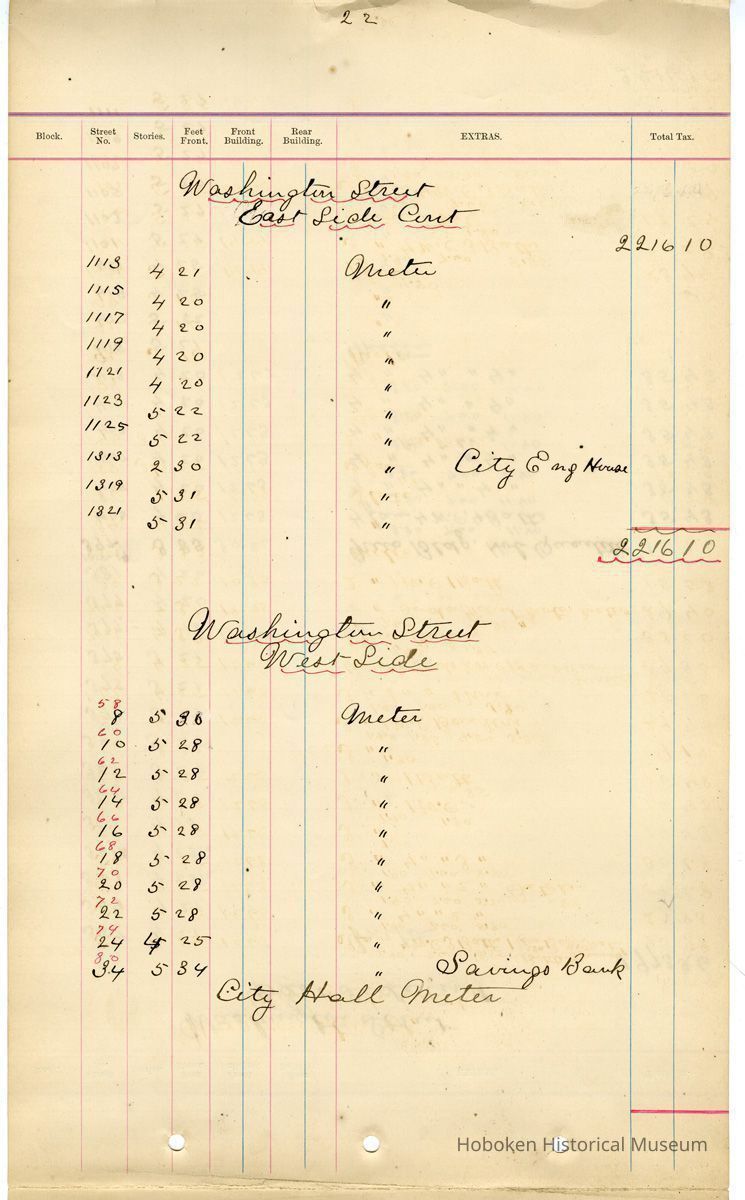 22
Block. Street No. Stories. Feet Front. Front Building. Rear Building. EXTRAS. Total Tax.
Washington Street
East Side Cont
2216 10
1113 4 21 Meter
1115 4 20 "
1117 4 20 "
1119 4 20 "
1121 4 20 "
1123 5 22 "
1125 5 22 "
1313 2 30 " City Eng House
1319 5 31 "
1321 5 31 "
2216 10
Washington Street
West Side
58
8 5 30 Meter
60
10 5 28 "
62
12 5 28 "
64
14 5 28 "
66
16 5 28 "
68
18 5 28 "
70
20 5 28 "
72
22 5 28 "
74
24 4 25 "
80
34 5 34 " Savings Bank
City Hall Meter
Hoboken Historical Museum